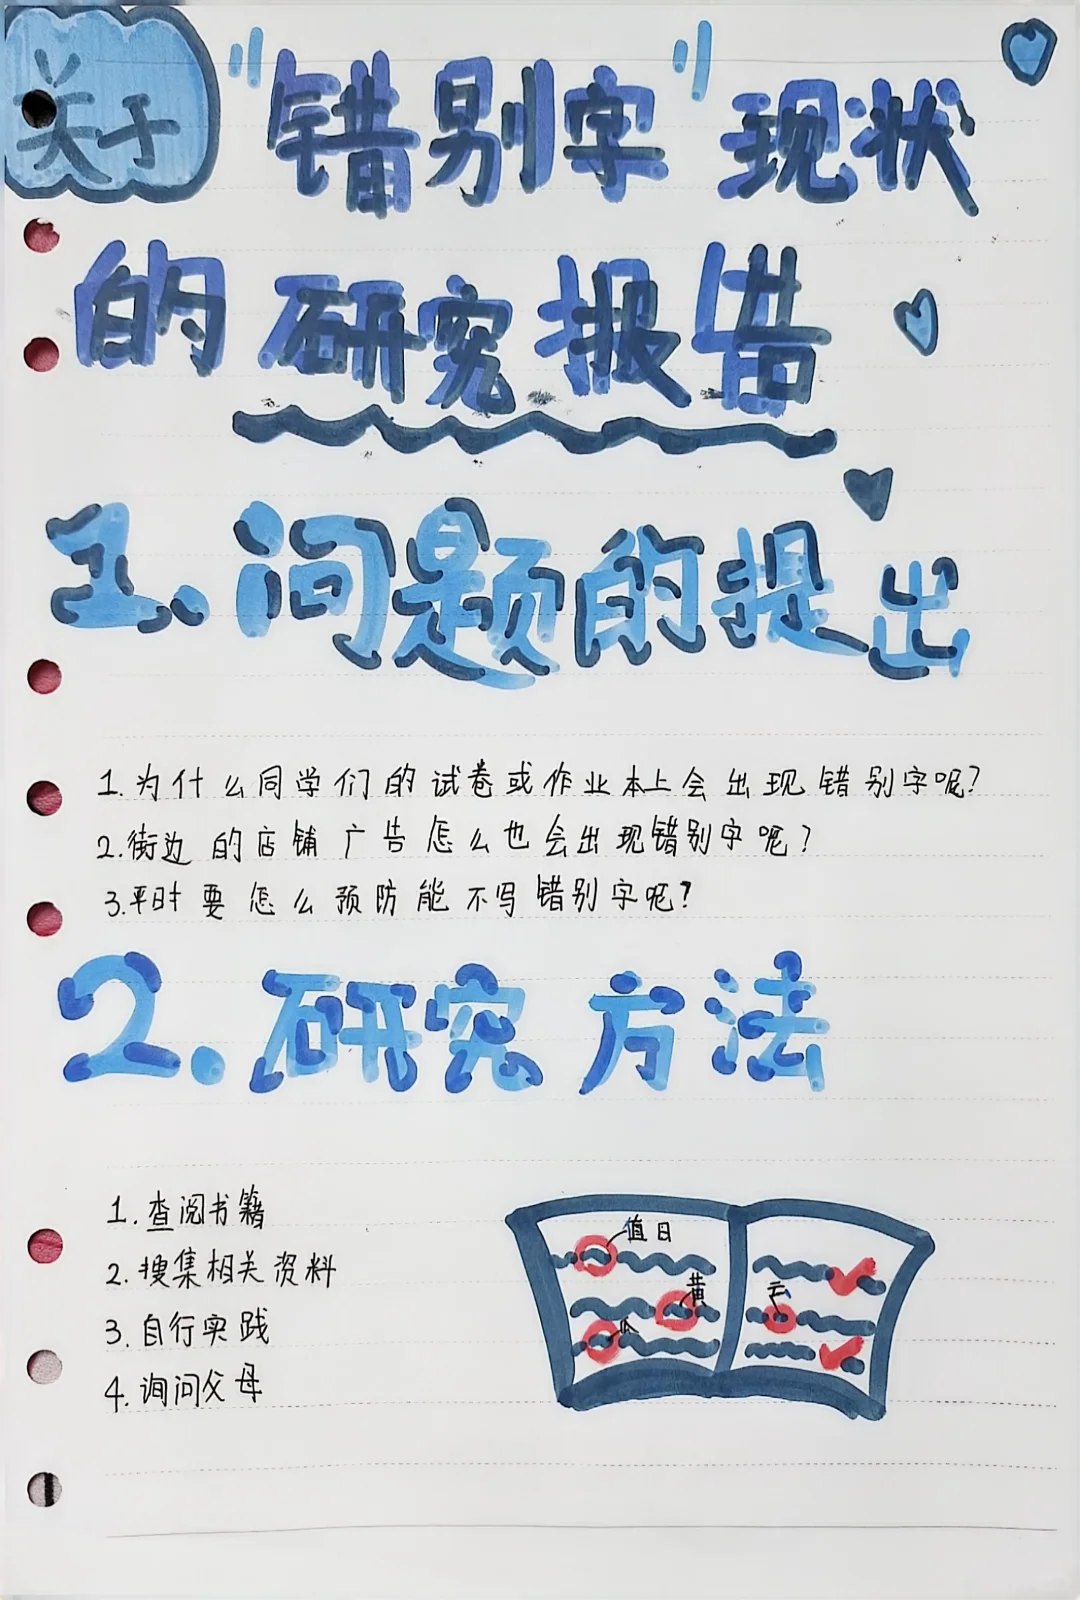 关于"错别字"现状
的研究报告
1.问题的提出
1.为什么同学们的试卷或作业本上会出现错别字呢?
2.街边的店铺广告怎么也会出现错别字呢?
3.平时要怎么预防能不写错别字呢?
2.研究方法
1.查阅书籍
2.搜集相关资料
3.自行实践
4.询问父母
值日
黄
云
瓜